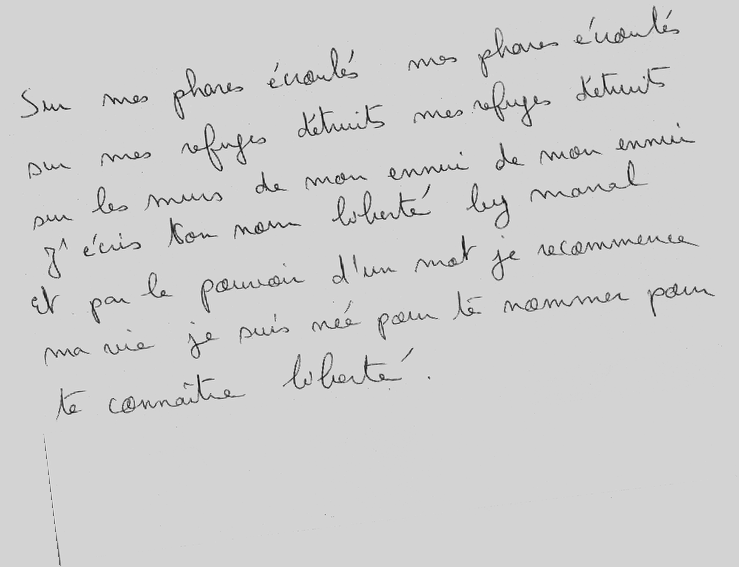 Sur mes phares écroulés mes phares écroulés
sur mes refuges détruits mes refuges détruits
sur les murs de mon ennui de mon ennui
J'écris ton nom liberté by manal
et par le pouvoir d'un mot je recommence
ma vie je suis née pour te nommer pour
te connaître liberté.